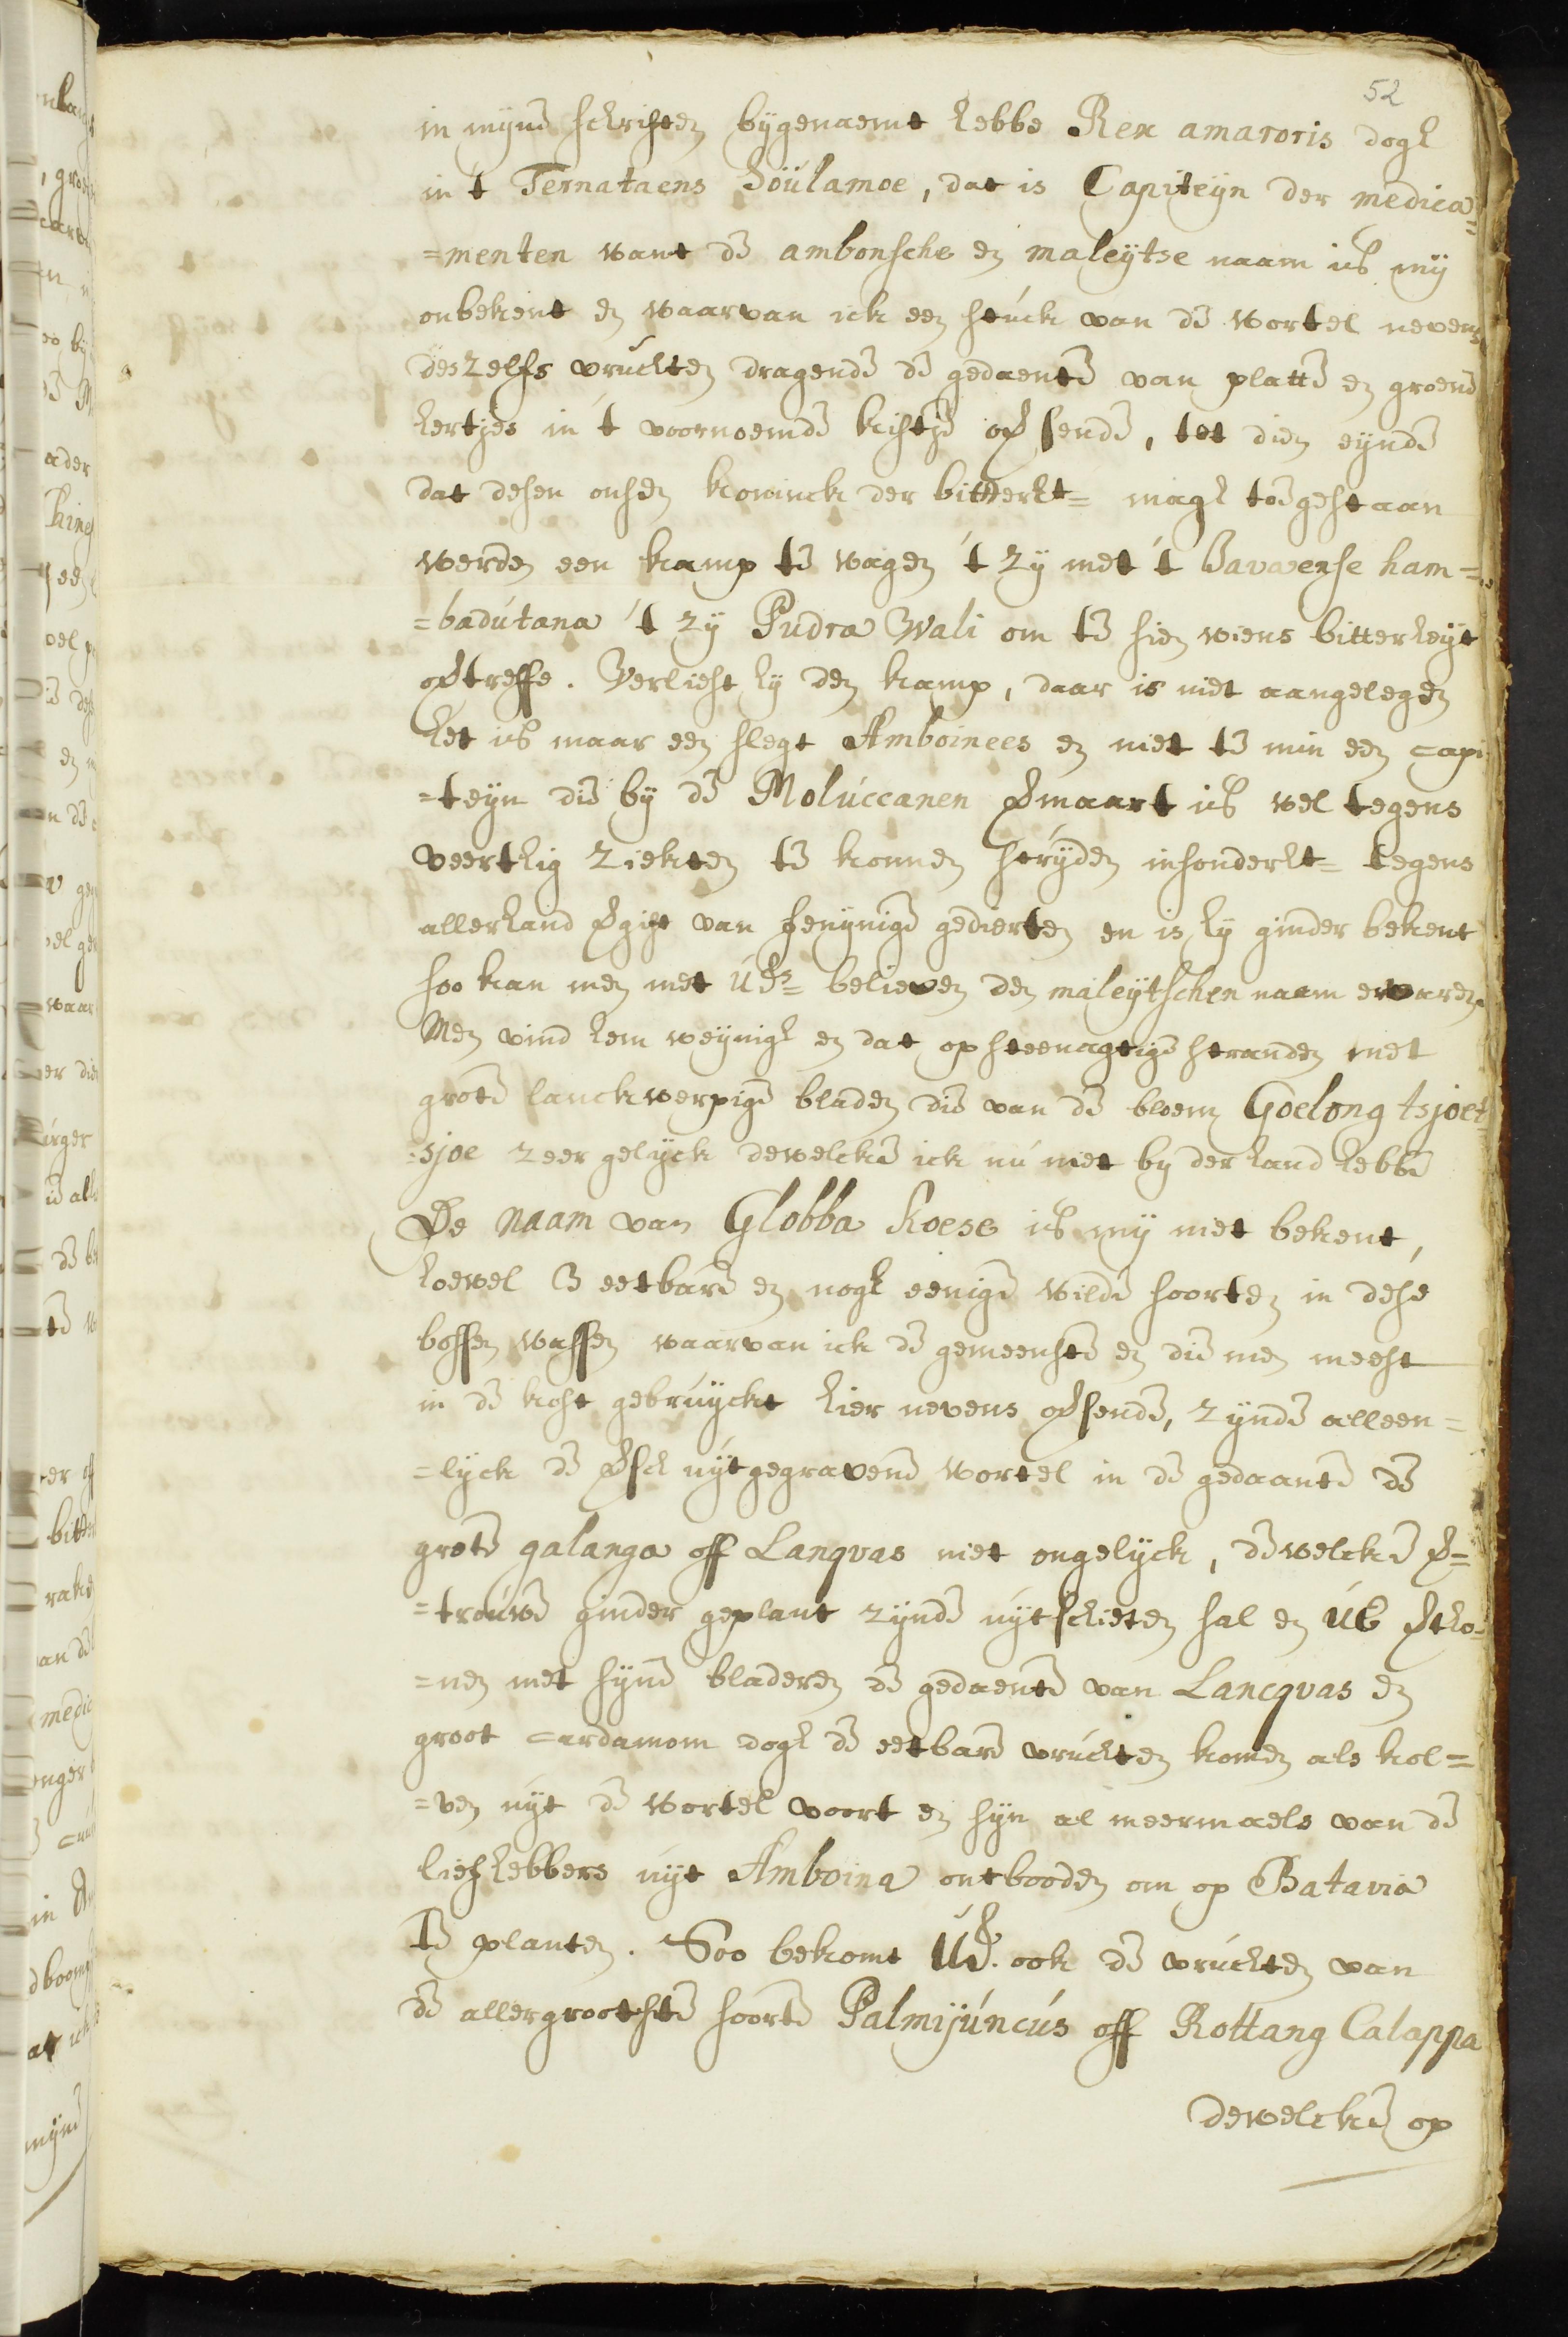 52
in mijne schriften bijgenaemt hebbe Rex amaroris dogh
in 't Ternataens Soülamoe, dat is Capiteijn der medica=
=menten want de ambonsche en maleijtse naam is mij
onbekent en waarvan ick een stúck van de wortel nevens
deszelfs vruchten dragende de gedaente van platte en groene
hertjes in 't voornoemde kistje oversende, tot dien eijnde
dat desen onsen koninck der bitterht= magh toegestaan
werden een kamp te wagen 't zij met 't Javaense ham=
=badútana 't zij Pudra Wali om te sien wiens bitterheijt
overtreffe. Verliest hij den kamp, daar is niet aangelegen
het is maar een slegt Amboinees en niet te min een capi
=teijn die bij de Molúccanen vermaart is wel tegens
veerthig ziekten te konnen strijden insonderht= tegens
allerhand vergift van fenijnige gedierten en is hij ginder bekent
soo kan men met úEs= believen den maleijtschen naam ervaren.
Men vind hem weijnigh en dat op steenagtige stranden met
grote lanckwerpige bladen die van de bloem Goelong tsjoet
=sjoe zeer gelijck dewelcke ick nú niet bij der hand hebbe
De naam van Globba Koese is mij niet bekent,
hoewel 3 eetbare en nogh eenige wilde soorten in dese
bossen wassen waarvan ick de gemeenste en die men meest
in de kost gebrúijckt hier nevens oversende, zijnde alleen=
=lijck de versch uijtgegravene wortel in de gedaante de
grote galanga off Lanqvas niet ongelijck, dewelcke ver=
=trouwe ginder geplant zijnde uijtschieten sal en úE vertho=
=nen met sijne bladeren de gedaente van Lancqvas en
groot cardamom dogh de eetbare vrúchten komen als kol=
=ven uijt de wortel voort en sijn al meermaels van de
liefhebbers uijt Amboina ontbooden om op Batavia
te planten. Soo bekomt UE. ook de vrúchten van
de allergrootste soorte Palmijúncús off Rottang Calappa
dewelcke op